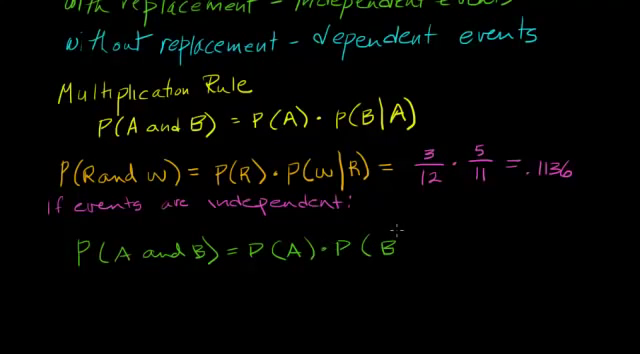 with replacement - independent events
without replacement - dependent events
Multiplication Rule
P(A and B) = P(A) · P(B|A)
P(R and W) = P(R) · P(W|R) = 3/12 · 5/11 = .1136
If events are independent:
P(A and B) = P(A) · P(B